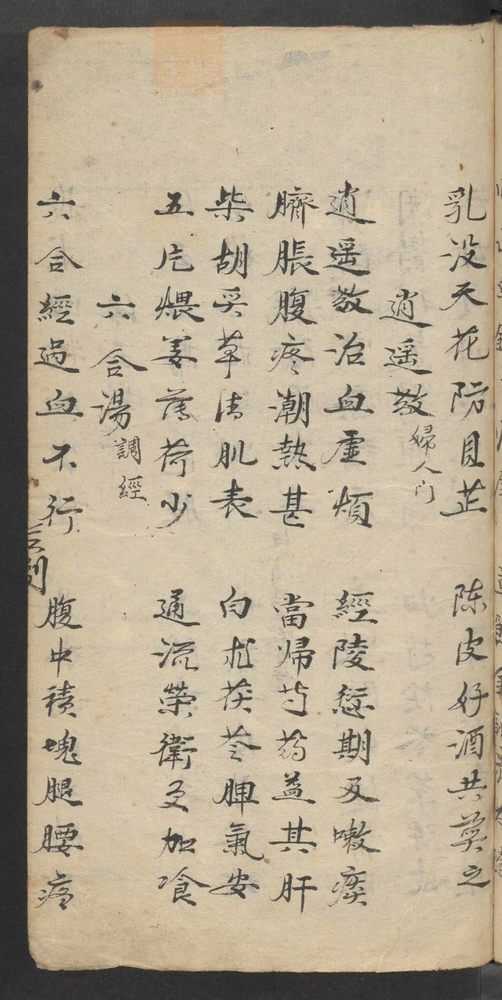 乳没天花防貝芷 陈皮好酒共煎之
逍遥散 婦人門
逍遥散治血虚煩 經陵愆期及嗽痰
臍脹腹疼潮熱甚 當歸芍葯益其肝
柴胡炙草清肌表 白朮茯苓脾氣安
五片煨姜薄荷少 通流榮衛更加飡
六合湯 調經
六合經過血不行 腹中積塊腿腰疼